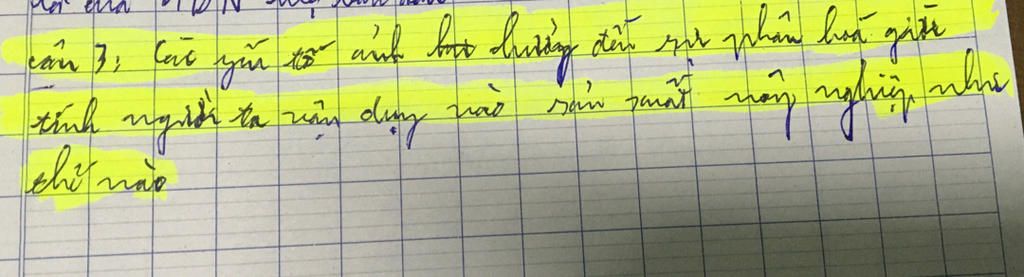 của ADN
câu 3: Các yếu tố ảnh hưởng đến sự phân hoá giới
tính người ta vận dụng vào sản xuất nông nghiệp như
thế nào